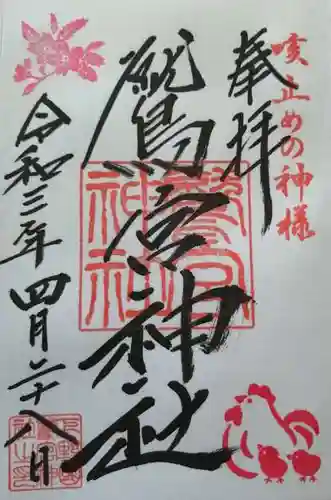 咳止めの神様
奉拝
鷲宮神社
鷲宮神社
令和三年四月二十八日